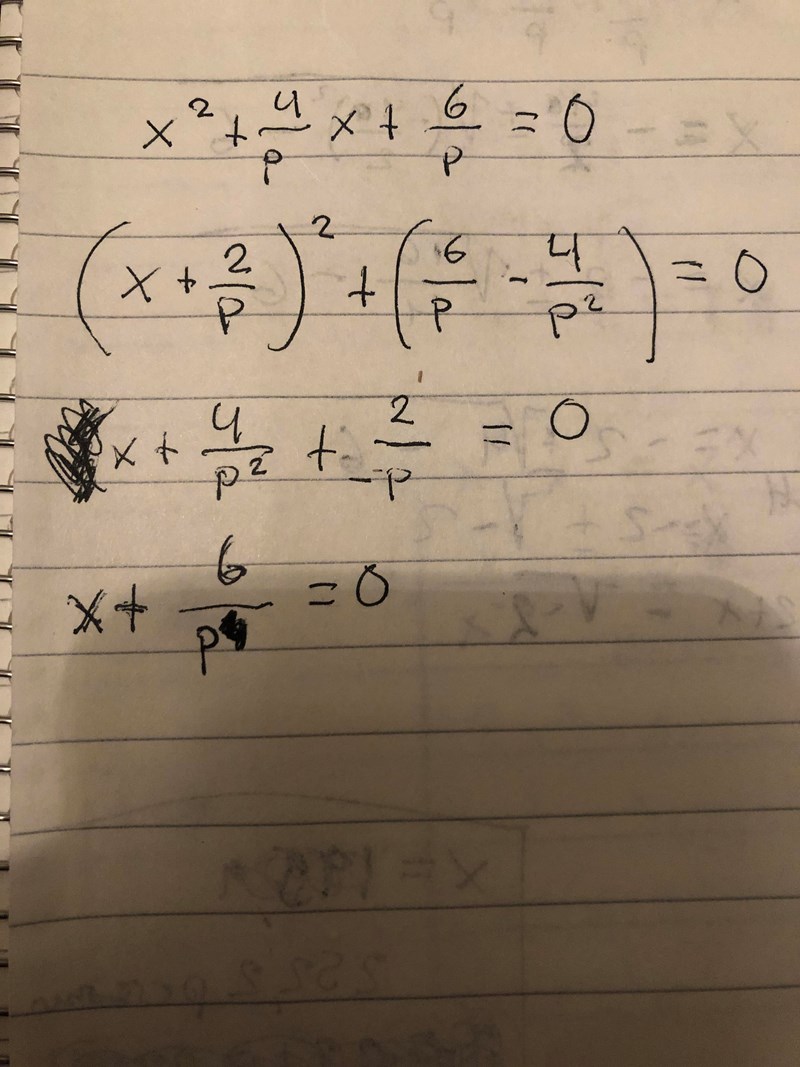 x² + 4/p x + 6/p = 0
(x + 2/p)² + (6/p - 4/p²) = 0
x + 4/p² + 2/-p = 0
x + 6/p = 0